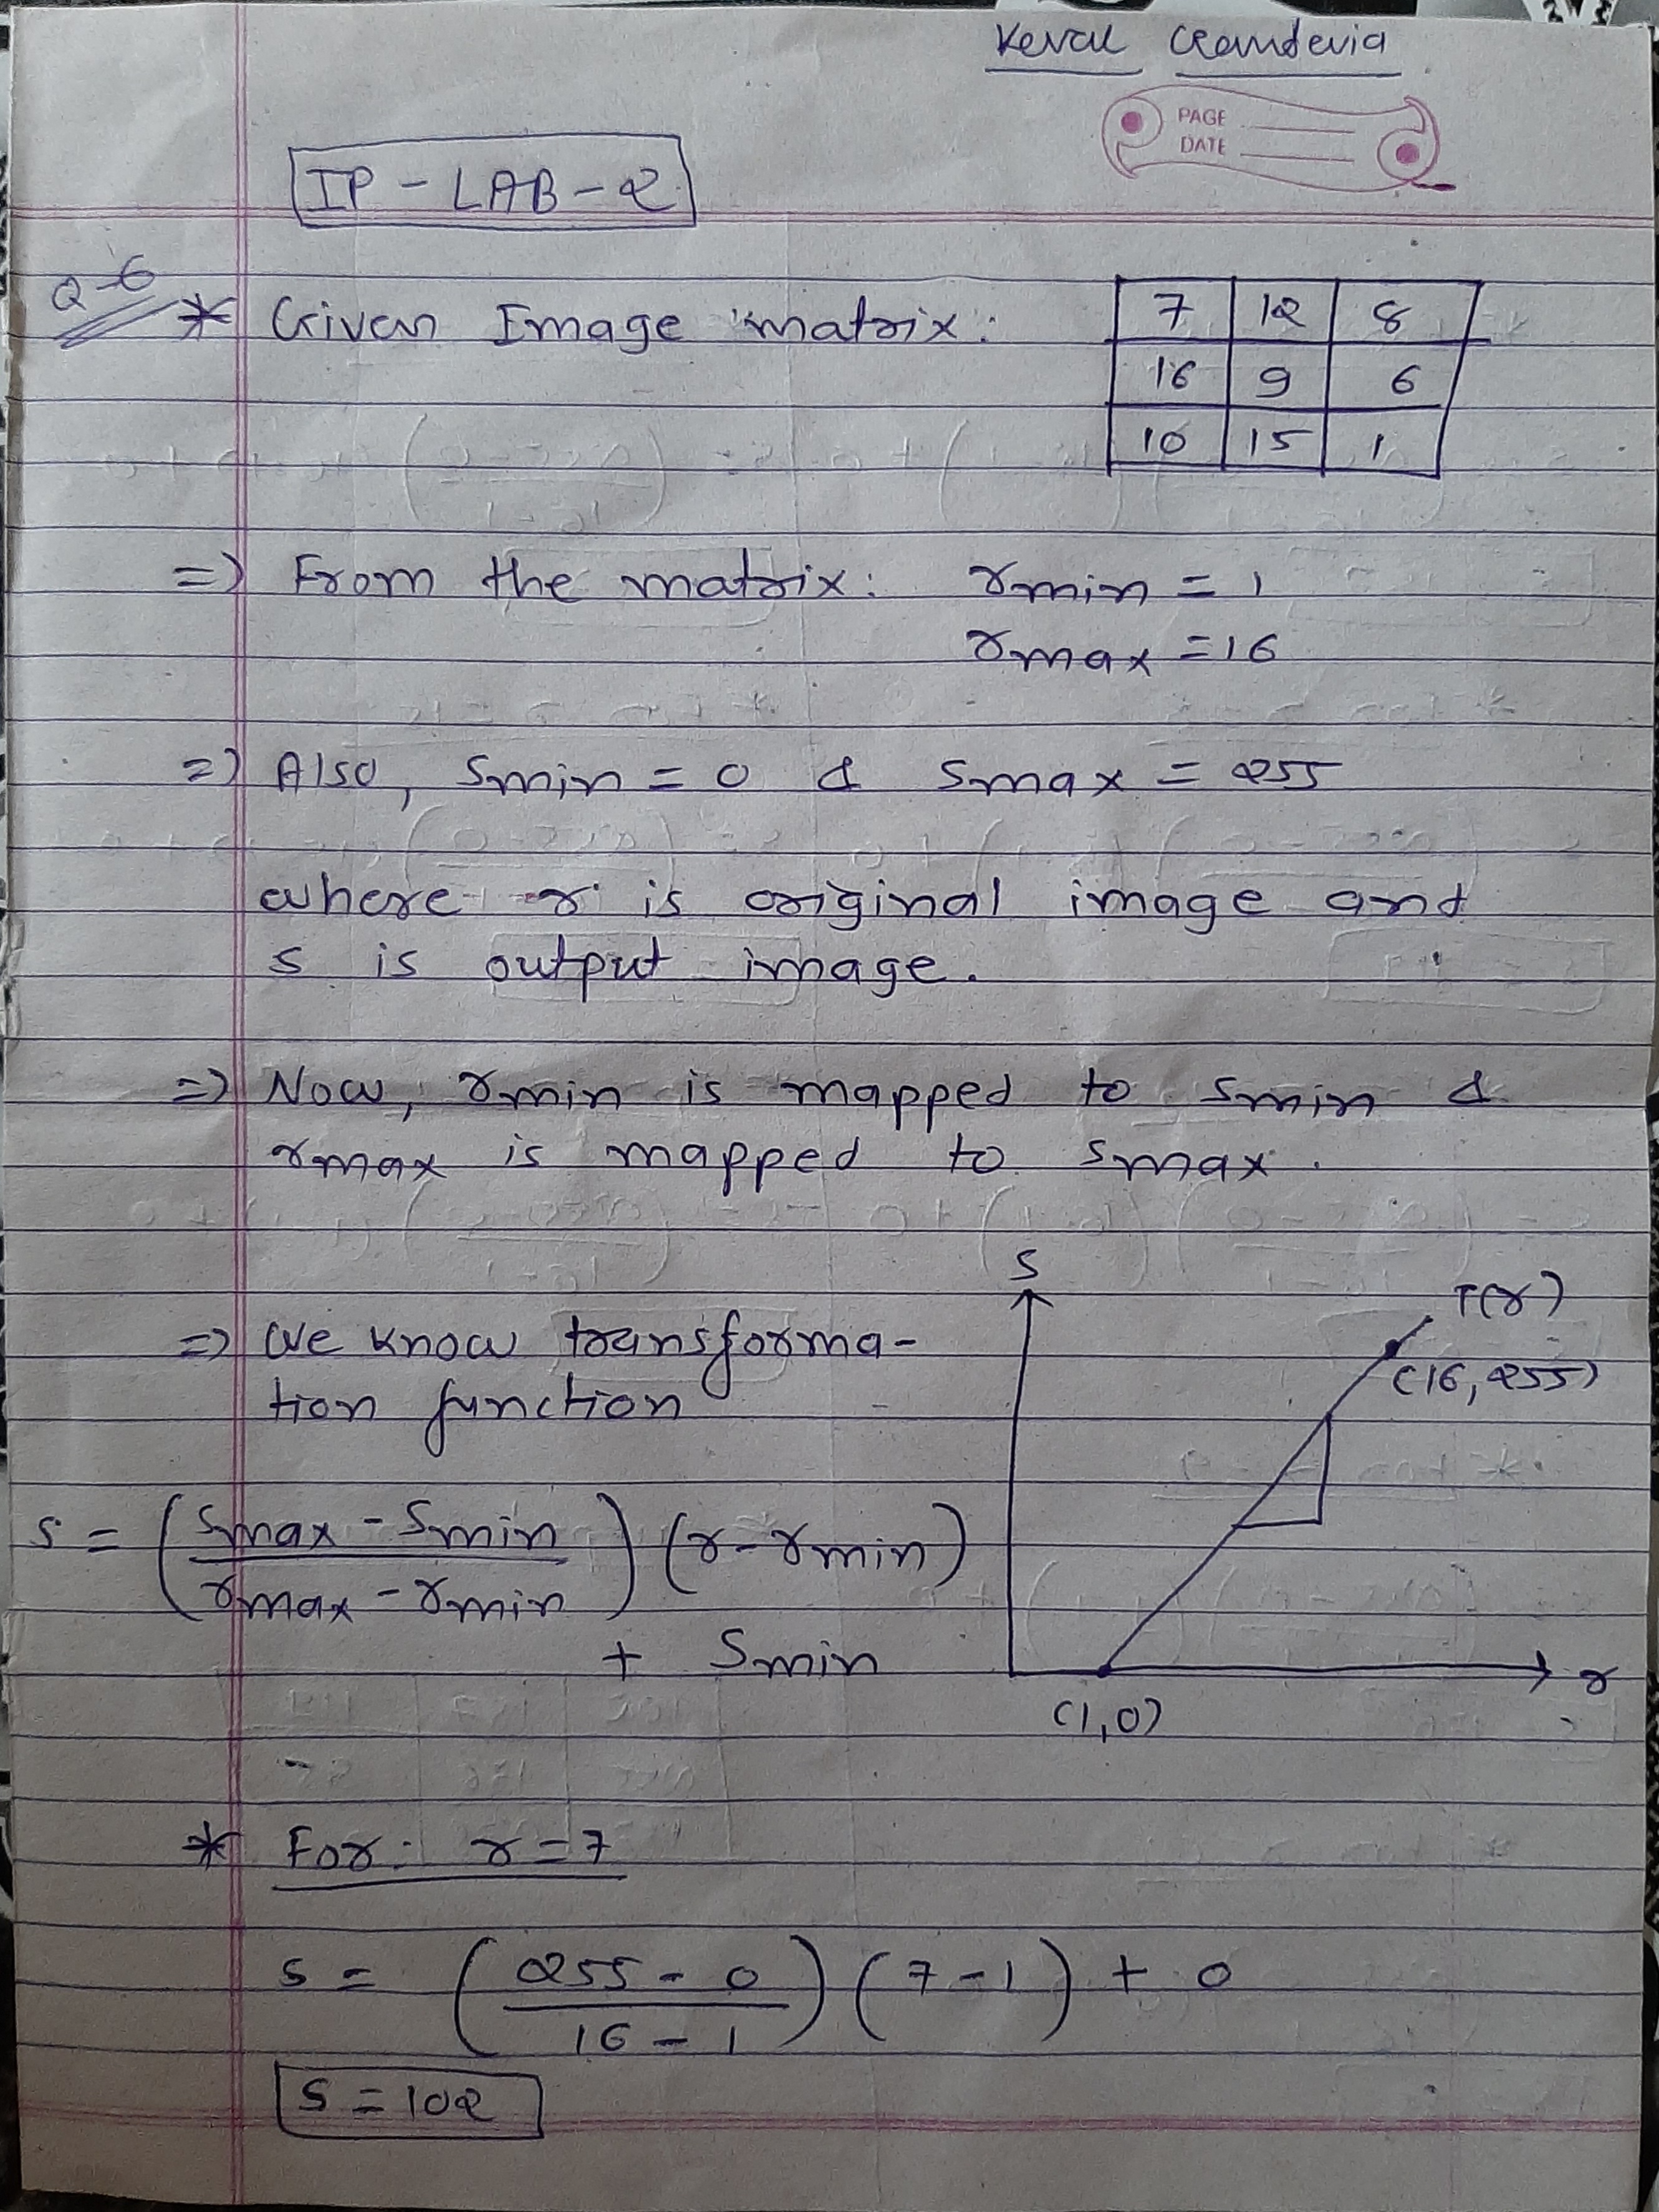 Keval
PAGE
DATE
IP - LAB - 2
Q-6
* Given Image matrix:
7 12 8
16 9 6
10 15 1
=> From the matrix: rmin = 1
rmax = 16
=> Also, Smin = 0 & Smax = 255
where r is original image and
s is output image.
=> Now, rmin is mapped to smin &
rmax is mapped to smax.
=> We know transforma-
tion function
s = (smax - smin / rmax - rmin) (r - rmin)
+ Smin
S
T(r)
(16, 255)
r
(1,0)
* For: r = 7
s = (255 - 0 / 16 - 1) (7 - 1) + 0
S = 102